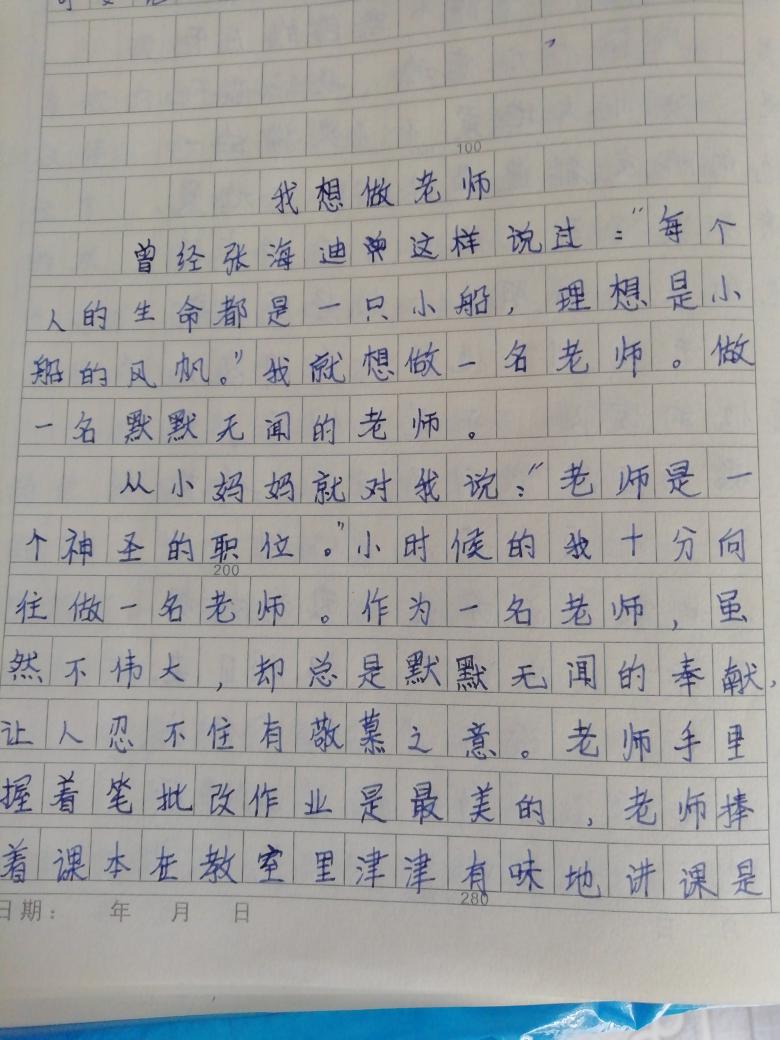 100
我想做老师
曾经张海迪这样说过：“每个
人的生命都是一只小船，理想是小
船的风帆。”我就想做一名老师。做
一名默默无闻的老师。
从小妈妈就对我说：“老师是一
个神圣的职位。”小时候的我十分向
200
往做一名老师。作为一名老师，虽
然不伟大，却总是默默无闻的奉献，
让人忍不住有敬慕之意。老师手里
握着笔批改作业是最美的，老师捧
着课本在教室里津津有味地讲课是
280
日期： 年 月 日